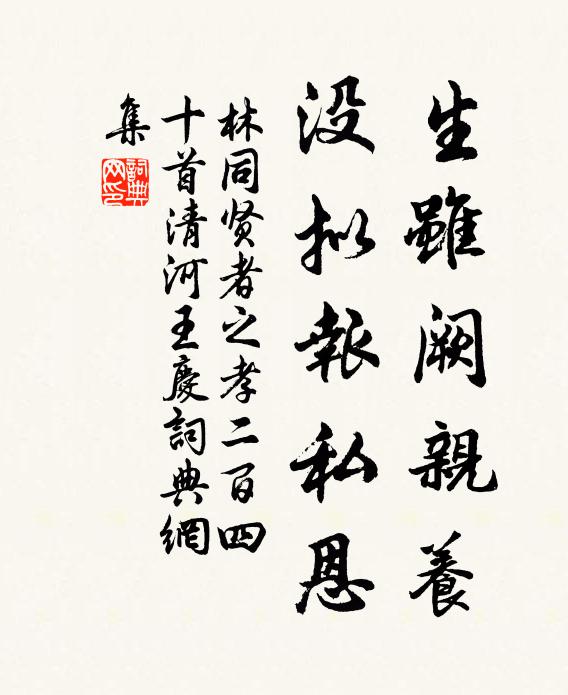 生雖阙親養
没拟報私恩
林同贤者之孝二百四
十首清河王慶詞典網
集
詞典网印